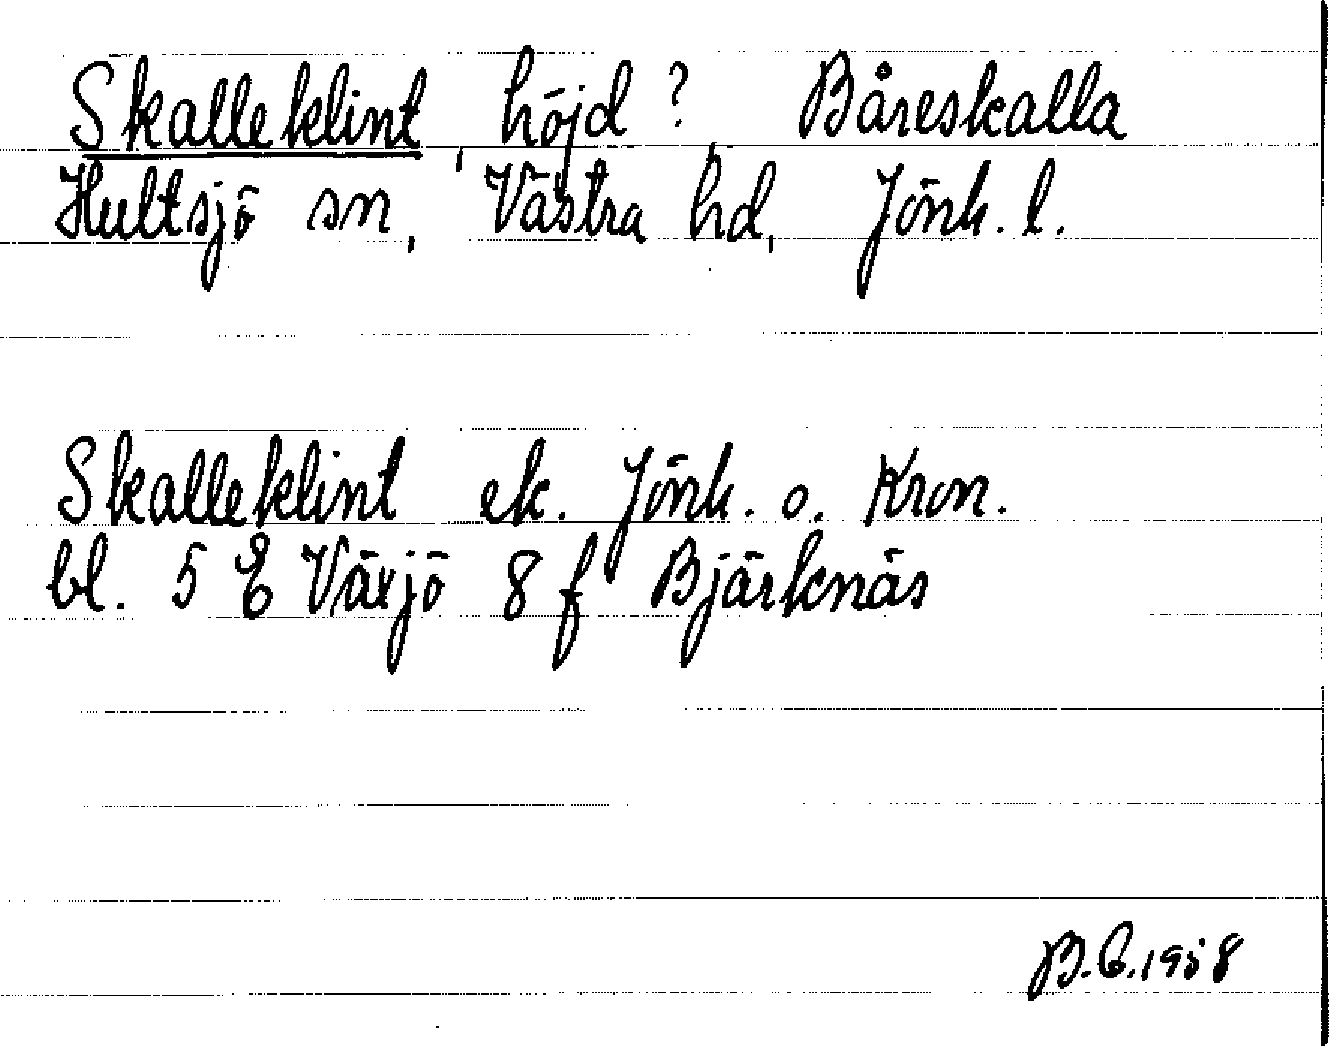 Skalleklint, höjd? Båreskalla
Hultsjö sn, Västra hd, Jönk. l.
Skalleklint ek. Jönk. o. Kron.
bl. 5 E Växjö 8 f Bjärknäs
B.E.1958